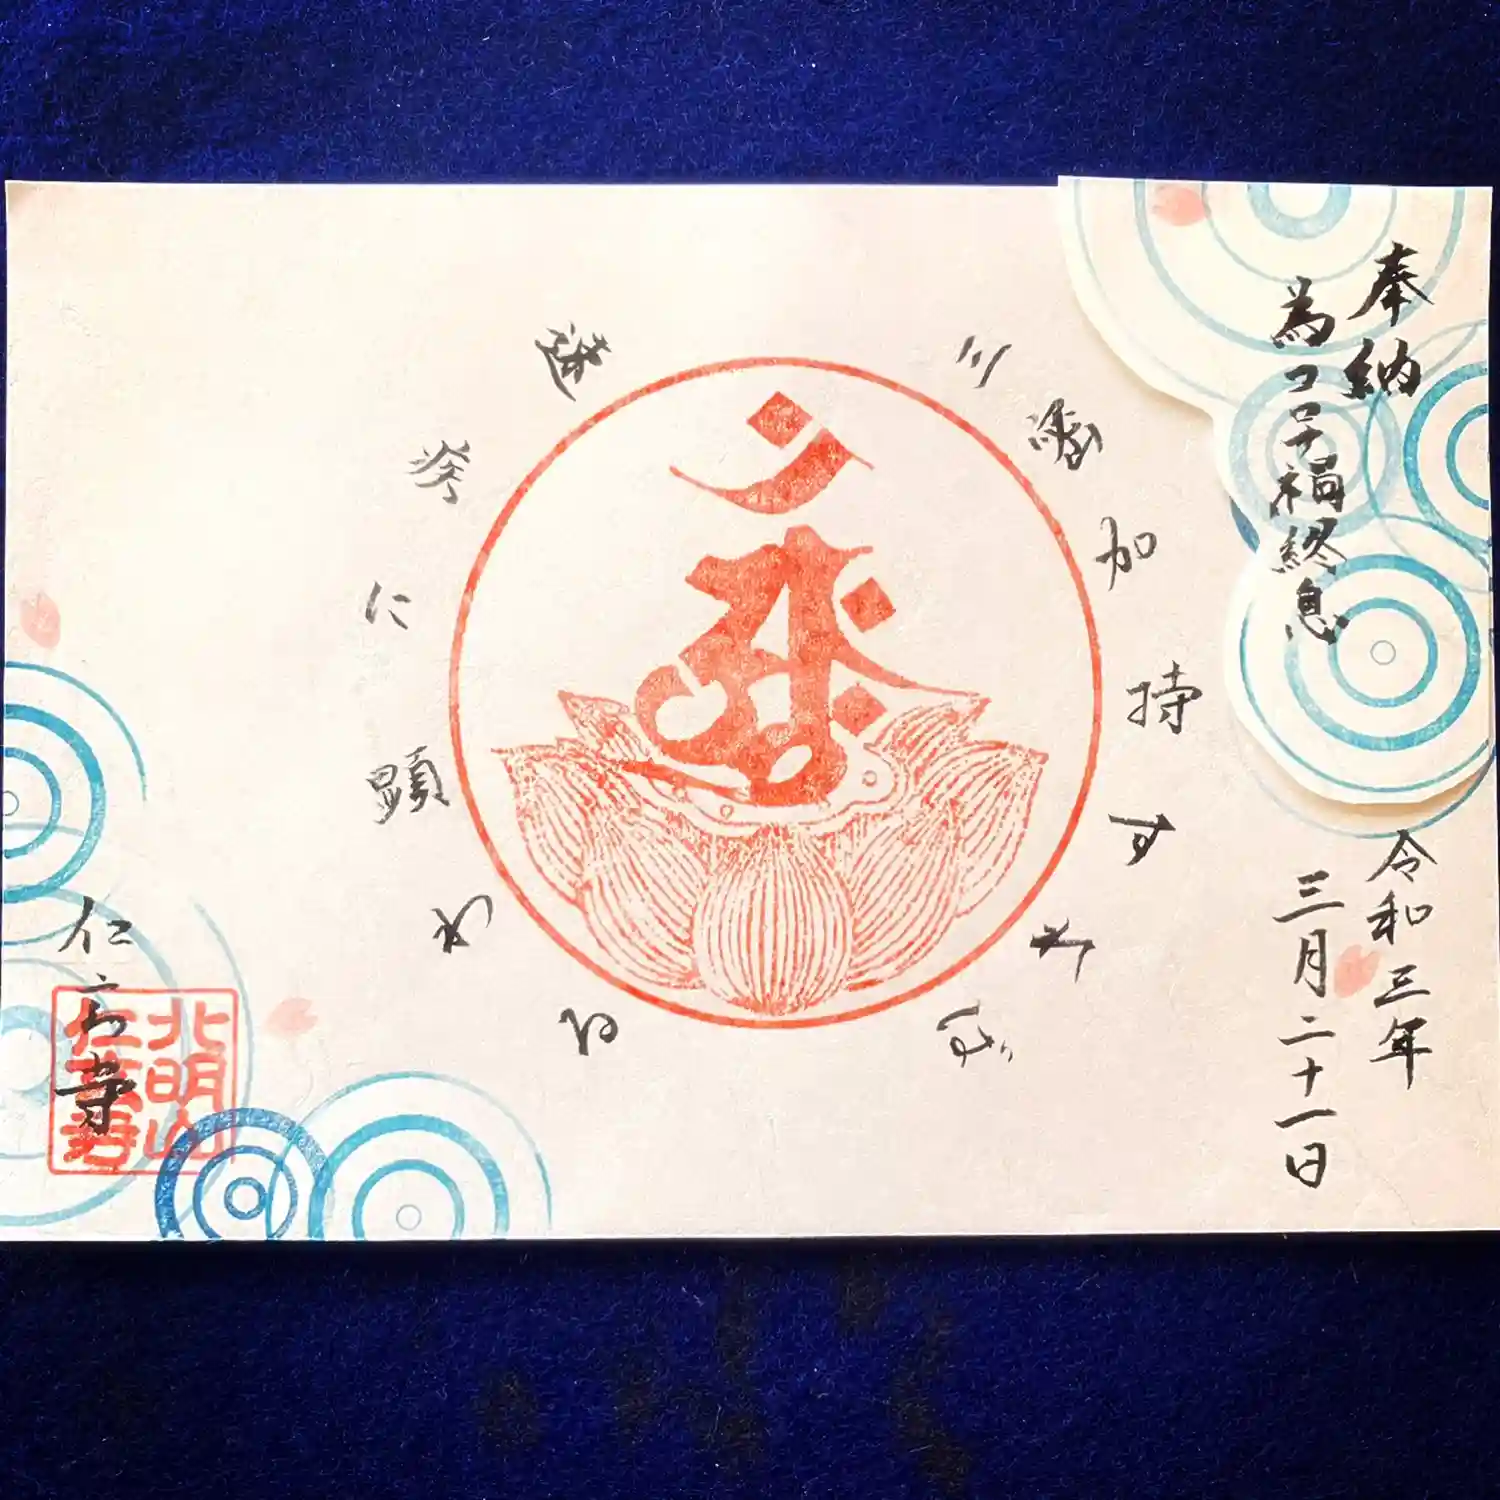 奉納
為コロナ禍終息
令和三年
三月二十一日
三密加持すれば
速疾に顕わる
仁玄寺
北明山
仁玄寺